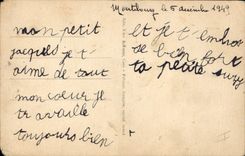 le 5 décembre 1949
mon petit
jacques je t'
aime de tout
mon coeur je
travaille
toujours bien
et je t'embras
se bien fort
ta petite